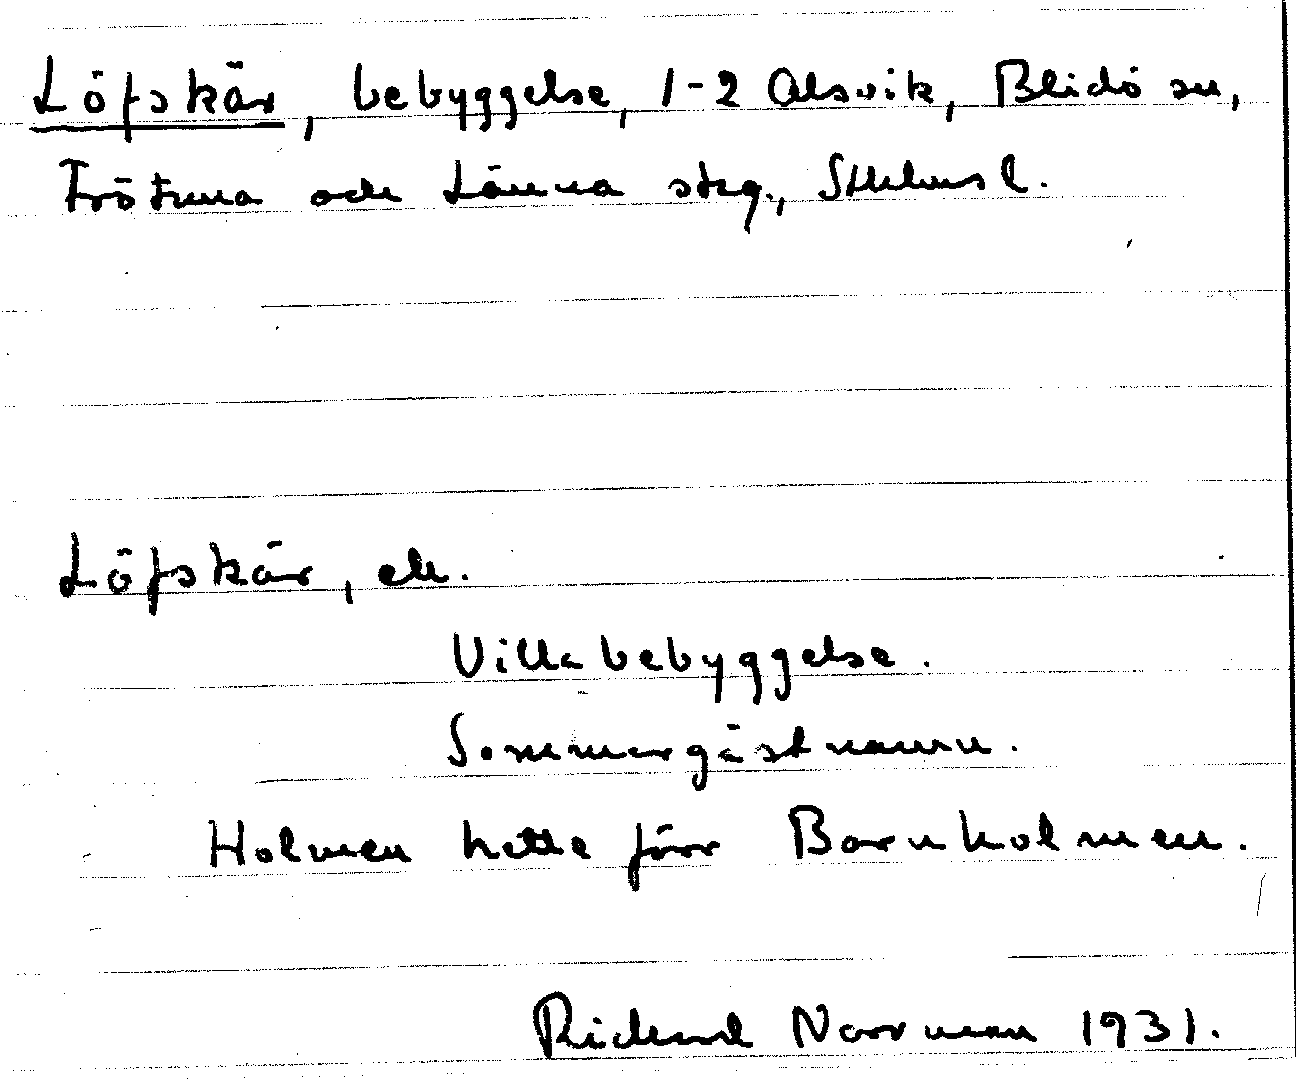 Löfskär, bebyggelse, 1-2 Alsvik, Blidö sn,
Frötuna och Länna skg., Sthlms l.
Löfskär, ek.
Villabebyggelse.
Sommargästnamn.
Holmen hette förr Barnholmen.
Rickard Norrman 1931.